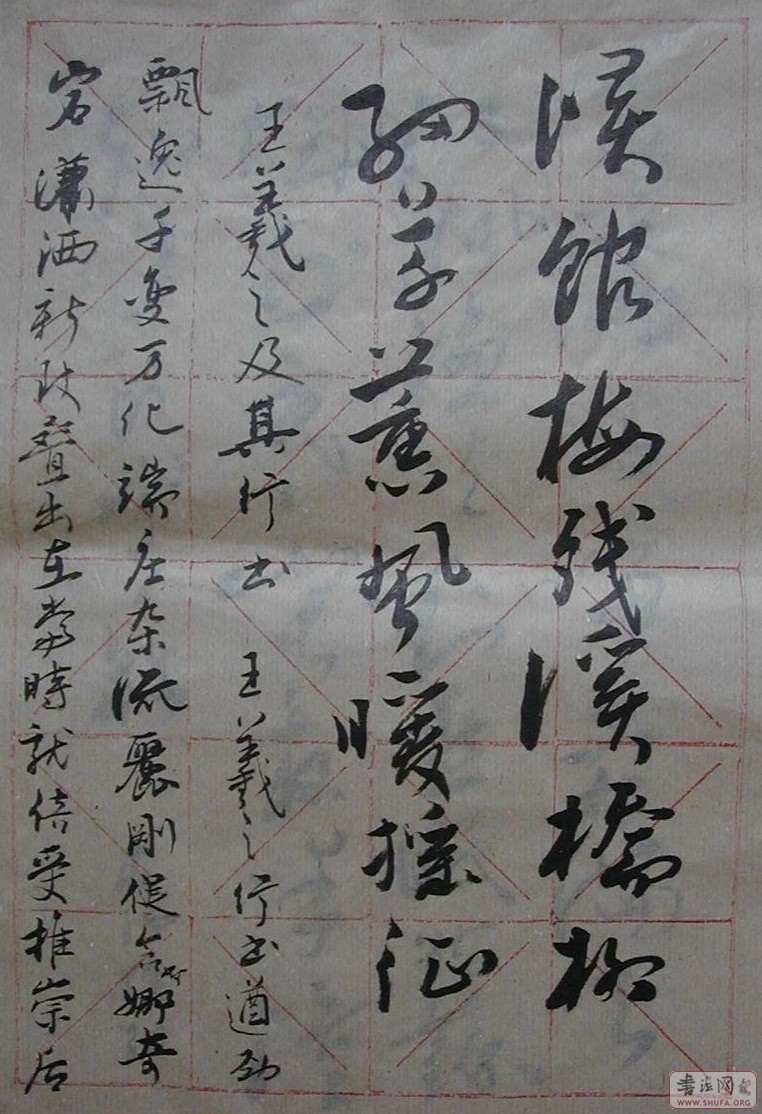 候館梅残溪橋柳
細草薰風暖摇征
王羲之及其行书 王羲之行书遒劲
飄逸千变万化端庄杂流麗剛健含婀娜奇
宕瀟洒新致叠出在當時就倍受推崇后
书法网报
WWW.SHUFA.ORG